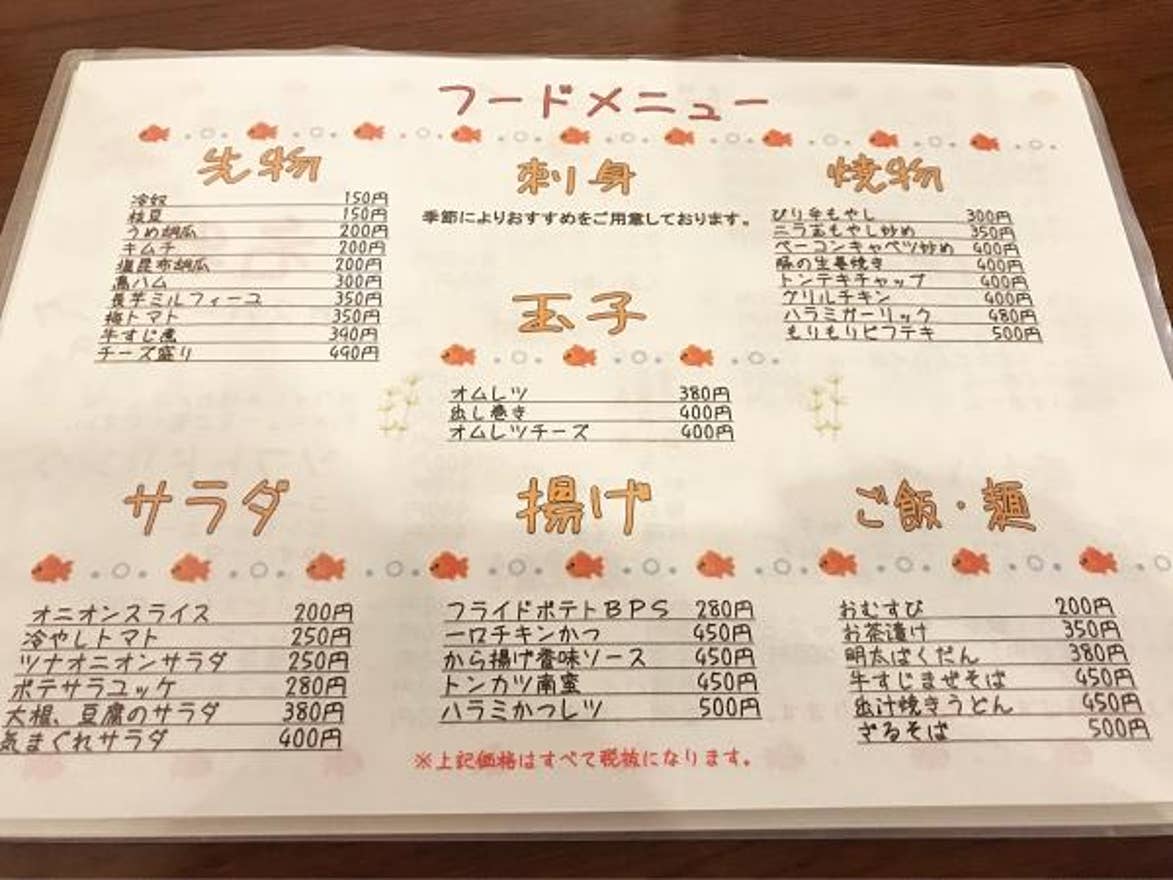 フードメニュー
先物
冷奴 150円
枝豆 150円
うめ胡瓜 200円
キムチ 200円
塩昆布胡瓜 200円
馬ハム 300円
長芋ミルフィーユ 350円
梅トマト 350円
牛すじ煮 390円
チーズ盛り 490円
刺身
季節によりおすすめをご用意しております。
焼物
ぴり辛もやし 300円
ニラ玉もやし炒め 350円
ベーコンキャベツ炒め 400円
豚の生姜焼き 400円
トンテキチャップ 400円
グリルチキン 400円
ハラミガーリック 480円
もりもりビフテキ 500円
玉子
オムレツ 380円
出し巻き 400円
オムレツチーズ 400円
サラダ
オニオンスライス 200円
冷やしトマト 250円
ツナオニオンサラダ 250円
ポテサラユッケ 280円
大根、豆腐のサラダ 380円
気まぐれサラダ 400円
揚げ
フライドポテトBPS 280円
一口チキンかつ 450円
から揚げ香味ソース 450円
トンカツ南蛮 450円
ハラミかつレツ 500円
ご飯・麺
おむすび 200円
お茶漬け 350円
明太ばくだん 380円
牛すじまぜそば 450円
出汁焼きうどん 450円
ざるそば 500円
※上記価格はすべて税抜になります。